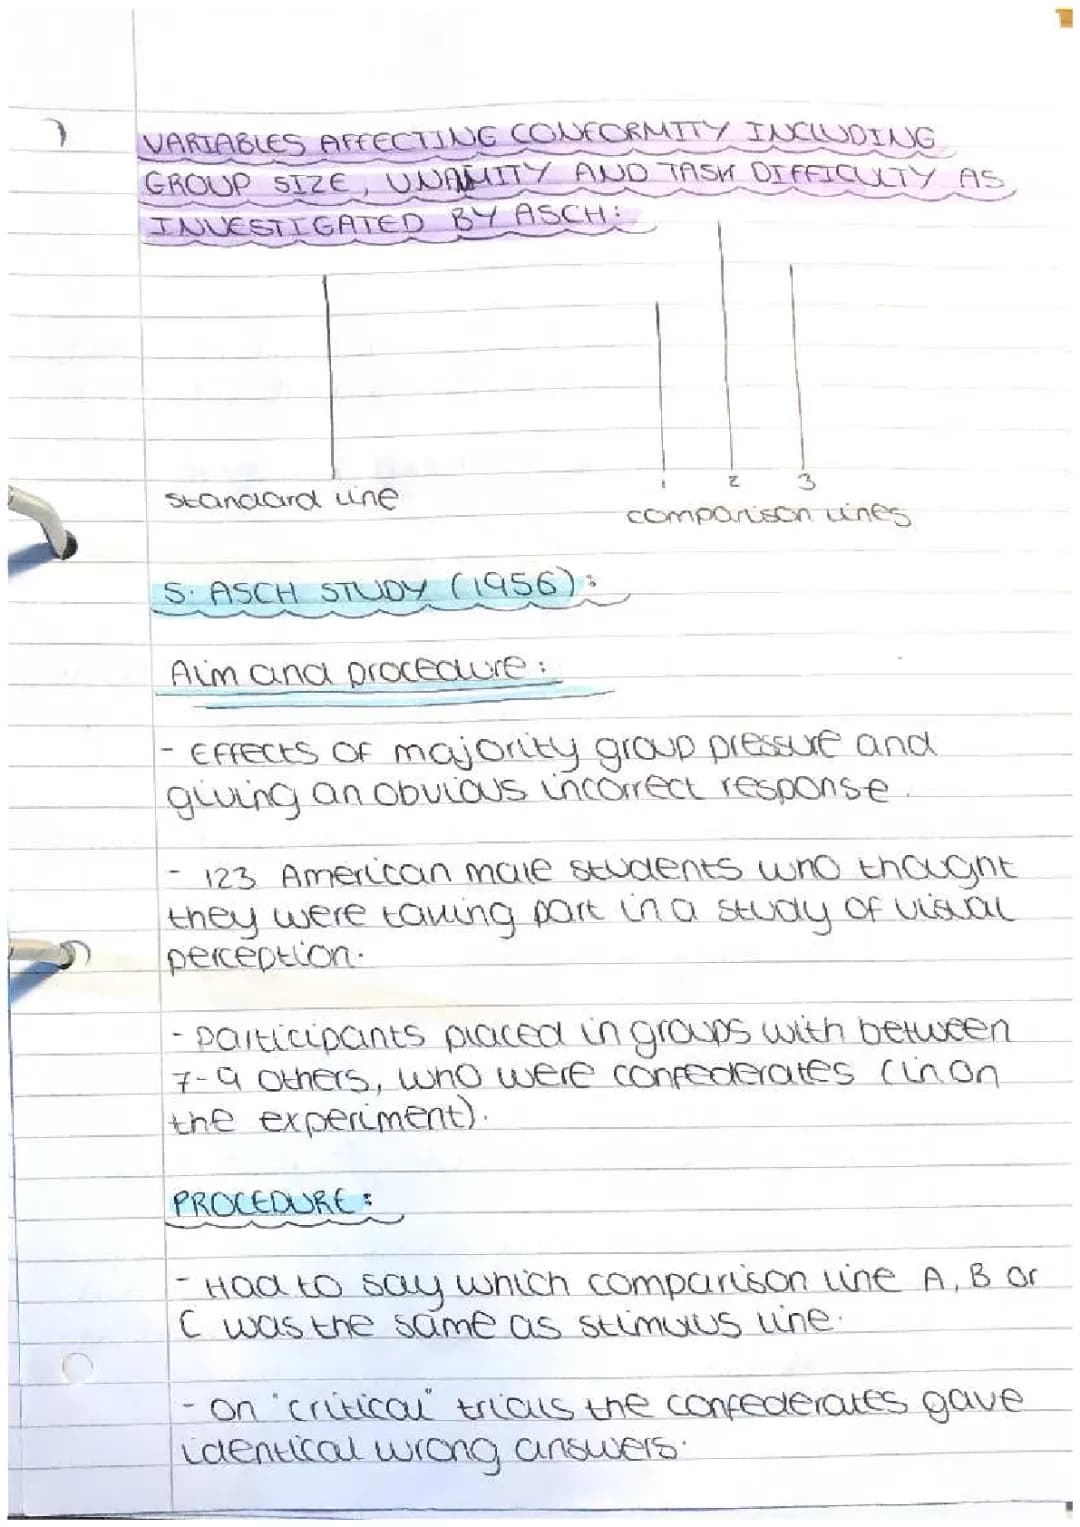 VARIABLES AFFECTING CONFORMITY INCLUDING
GROUP SIZE, UNAMITY AND TASK DIFFICULTY AS
INVESTIGATED BY ASCH:
1 2 3
standard line
comparison lines
S. ASCH STUDY (1956):
Aim and procedure:
- Effects of majority group pressure and
giving an obvious incorrect response.
- 123 American male students who thought
they were taking part in a study of visual
perception.
- participants placed in groups with between
7-9 others, who were confederates (in on
the experiment).
PROCEDURE:
- Had to say which comparison line A, B or
C was the same as stimulus line.
- on "critical" trials the confederates gave
identical wrong answers.